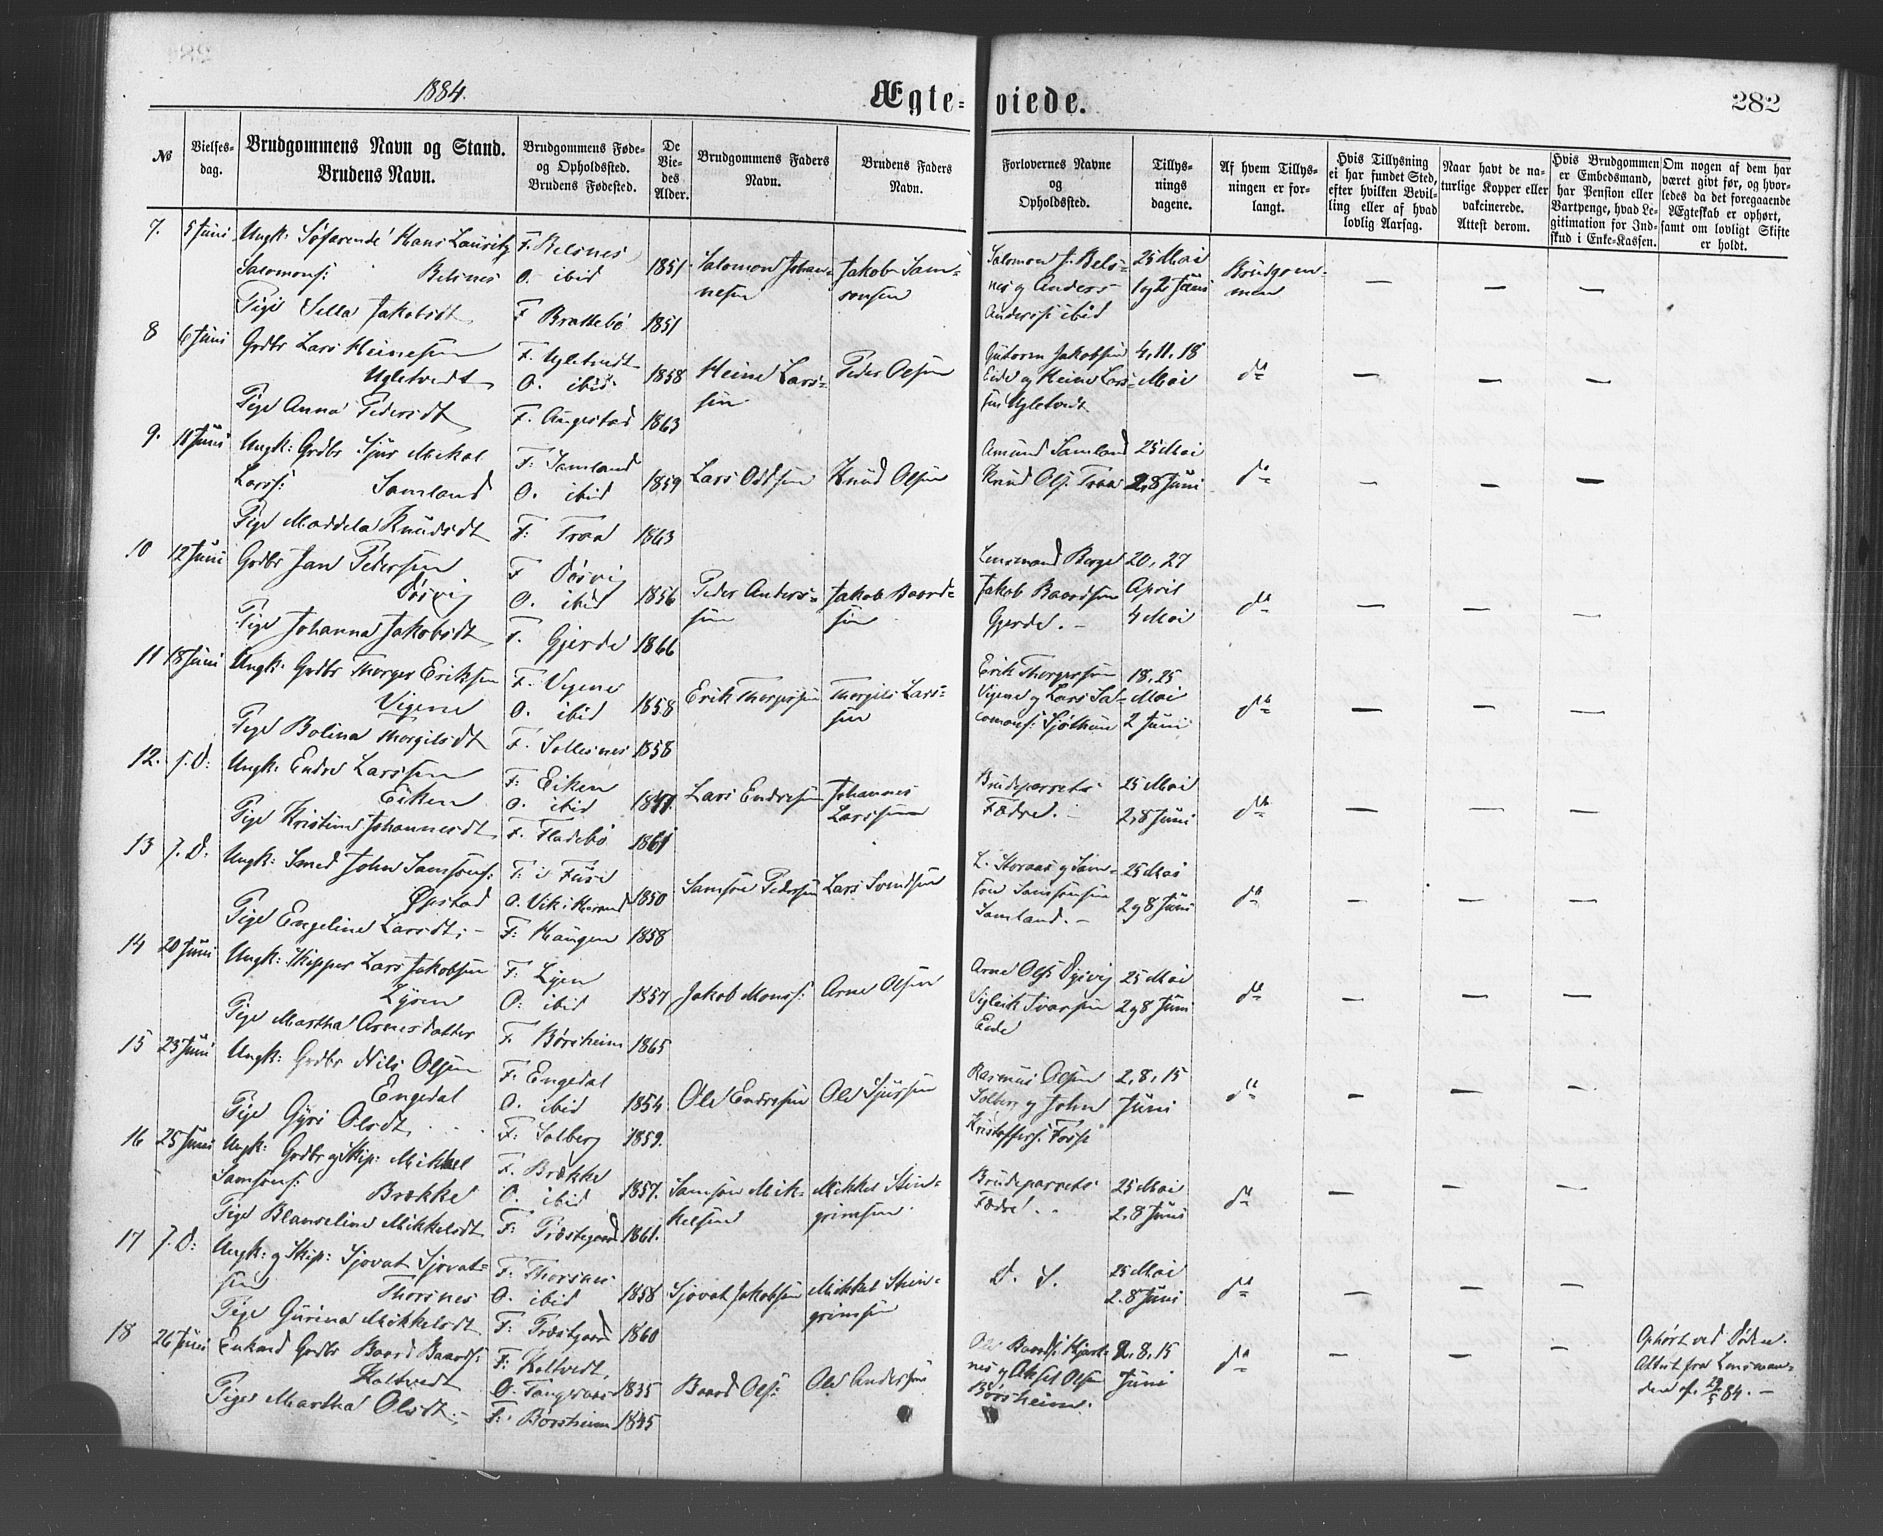 1884.
Ægte- viede.
282
№
Vielses-dag.
Brudgommens Navn og Stand.
Brudens Navn.
Brudgommens Føde-
og Opholdssted.
Brudens Fødested.
De Vie-des Alder.
Brudgommens Faders
Navn.
Brudens Faders
Navn.
Forlovernes Navne
og
Opholdssted.
Tillys-
nings
dagene.
Af hvem Tillys-
ningen er for-
langt.
Hvis Tillysning
ei har fundet Sted,
efter hvilken Bevil-
ling eller af hvad
lovlig Aarsag.
Naar havt de na-
turlige Kopper eller
vakcinerede.
Attest derom.
Hvis Brudgommen
er Embedsmand,
har Pension eller
Vartpenge, hvad Le-
gitimation for Ind-
skud i Enke-Kassen.
Om nogen af dem har
været givt før, og hvor-
ledes da det foregaaende
Ægteskab er ophørt,
samt om lovligt Skifte
er holdt.
7. 5 Juni Ungk: Søfarende Hans Lauritz
Salomons: Belsnes
Pige Sella Jakobsdt
F. Belsnes
O. ibid 1851
F Brattebø 1851
Salomon Johan-
nesen
Jakob Sam-
sonsen
Salomon J. Bels-
nes og Anders
Anderss: ibid
25 Mai
1 og 2 Juni
Brudgom-
men
— — —
8 6 Juni Grdbr Lars Heinesen
Ugletvedt
Pige Anna Pedersdt
F. Ugletvedt
O. ibid 1858
F. Augestad 1863
Heine Lars-
sen
Peder Olsen
Guttorm Jakobsen
Eide og Heine Lars-
sen Ugletvedt
4, 11, 18
Mai
do
— — —
9. 11 Juni Ungk: Grdbr Sjur Mikal
Larss: Samland
Pige Maddela Knudsdt
F: Samland
O. ibid 1859
F: Traa 1863
Lars Oddsen
Knud Olsen
Amund Samland
Knud Ols. Traa
25 Mai
2, 8 Juni
do
— — —
10 12 Juni Grdbr Jan Pedersen
Døsvig
Pige Johanna Jakobsdt
F Døsvig
O. ibid 1856
F. Gjerde 1866
Peder Anders-
sen
Jakob Baard-
sen
Lensmand Berge
Jakob Baardsen
Gjerde. -
20, 27
April
4 Mai
do
— — —
11 18 Juni Ungk: Grdbr Thorger Eriksen
Vigene
Pige Bolina Thorgilsdt
F. Vigene
O. ibid 1858
F. Sollesnes 1858
Erik Thorgersen
Thorgils Lars-
sen
Erik Thorgersen
Vigene og Lars Sa-
lomons: Sjøthun
18, 25
Mai
2 Juni
do
— — —
12. s. D: Ungk: Endre Larssen
Eiken
Pige Kristina Johannesdt
F: Eiken
O. ibid
F. Fladebø 1861
Lars Endresen
Johannes
Larssen
Brudeparrets
Fædre. -
25 Mai
2, 8 Juni
do
— — —
13 s. D. Ungk: Smed John Samsons:
Øpstad
Pige Engeline Larsdt: -
F: i Fuse
O. Vik i 1850
F: Haugen 1858
Samson Pedersen
Lars Svendsen
L. Storaas og Sam-
son Samsonsen
Samland. -
25 Mai
2 og 8 Juni
do
— — —
14 20 Juni Ungk: Skipper Lars Jakobsen
Lysen
Pige Martha Arnesdatter
F: Lysen
O: ibid 1857
F. Børsheim 1865
Jakob Monss:
Arne Olsen
Arne Ols:
Vigleik Ivarsen
Eide
25 Mai
2 og 8 Juni
do
— — —
15 23 Juni Ungk: Grdbr Nils Olsen
Engedal
Pige Gyri Olsdt
F: Engedal
O. ibid 1854
F: Solberg 1859.
Ole Endresen
Ole Sjursen
Rasmus Olsen
Solberg og John
Kristoffers: Fosse
2, 8, 15
Juni
do
— — —
16 25 Juni Ungk: Grdbr og Skip: Mikkel
Samsons: Brække
Pige Blanseline Mikkelsdt
F. Brække
O. ibid 1857.
F: Præstegaard 1861.
Samson Mik-
kelsen
Mikkel Stein-
grimsen.
Brudeparrets
Fædre!
25 Mai
2, 8 Juni
do
— — —
17 s. D: Ungk: og Skip: Sjovat Sjovat-
sen Thorsnes
Pige Gurina Mikkelsdt
F: Thorsnes
O. ibid 1858
F: Præstgaard 1860
Sjovat Jakobsen
Mikkel Stein-
grimsen
D. S.
25 Mai
2. 8 Juni
do
— — —
18 26 Juni Enkmd Grdbr Baard Baards:
Kaltvedt
Pigen Martha Olsdt: -
F: Kaltvedt,
O. Tangeraas 1835
F: Børsheim 1845
Baard Ols:
Ole Andersen
Ole Baards:
nes og Aksel Olsen
Børsheim.
2, 8, 15
Juni
do
— — —
Ophørt ved Døden.
Attest fra Lensman-
den af 29/5 84. -